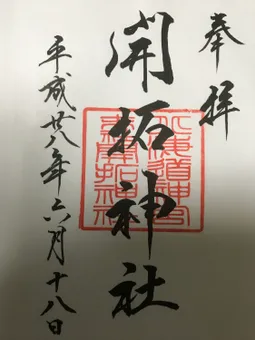 奉拝
開拓神社
平成廿八年六月十八日
北海道神宮
末社開拓神社